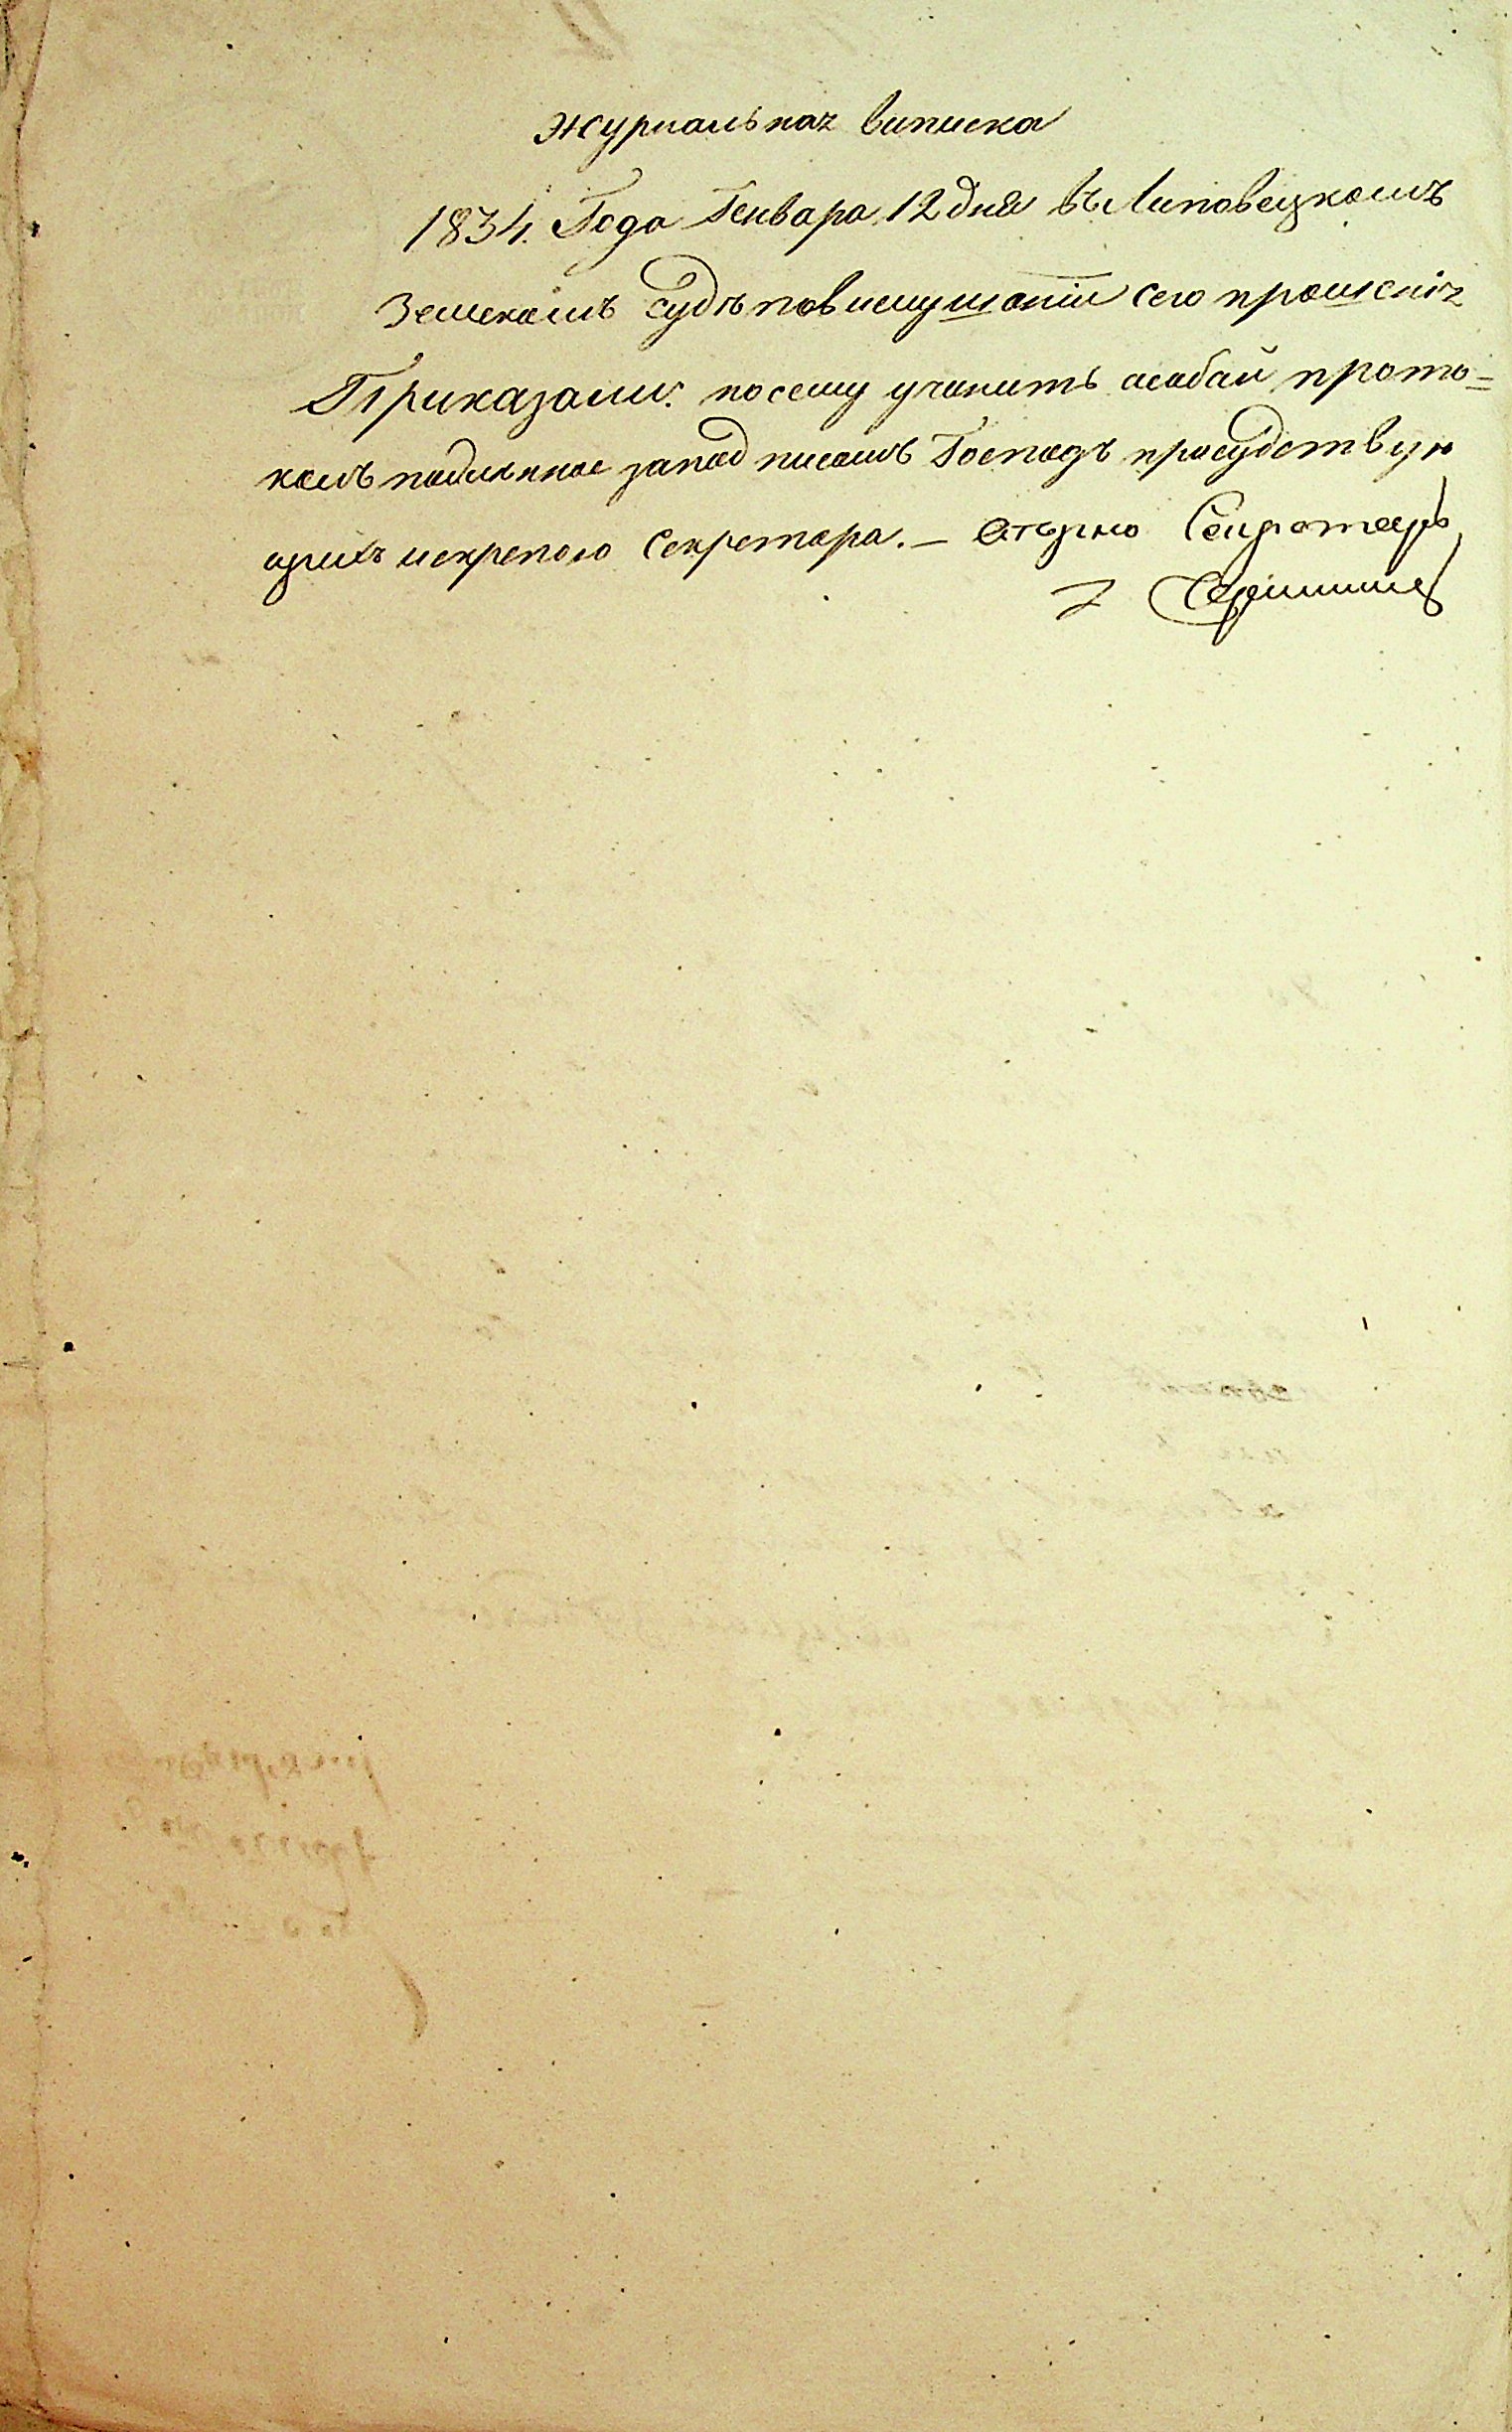 Журнальная выписка
1834. Года Генвара 12 дня въ Липовецкомъ
Земскомъ судѣ повислушаніи сего прошенія
Приказали: посему учинить особай прото=
колъ подлѣнное заподписомъ Господъ присудствую
щихъ искрепою Секретара. — Секретарь